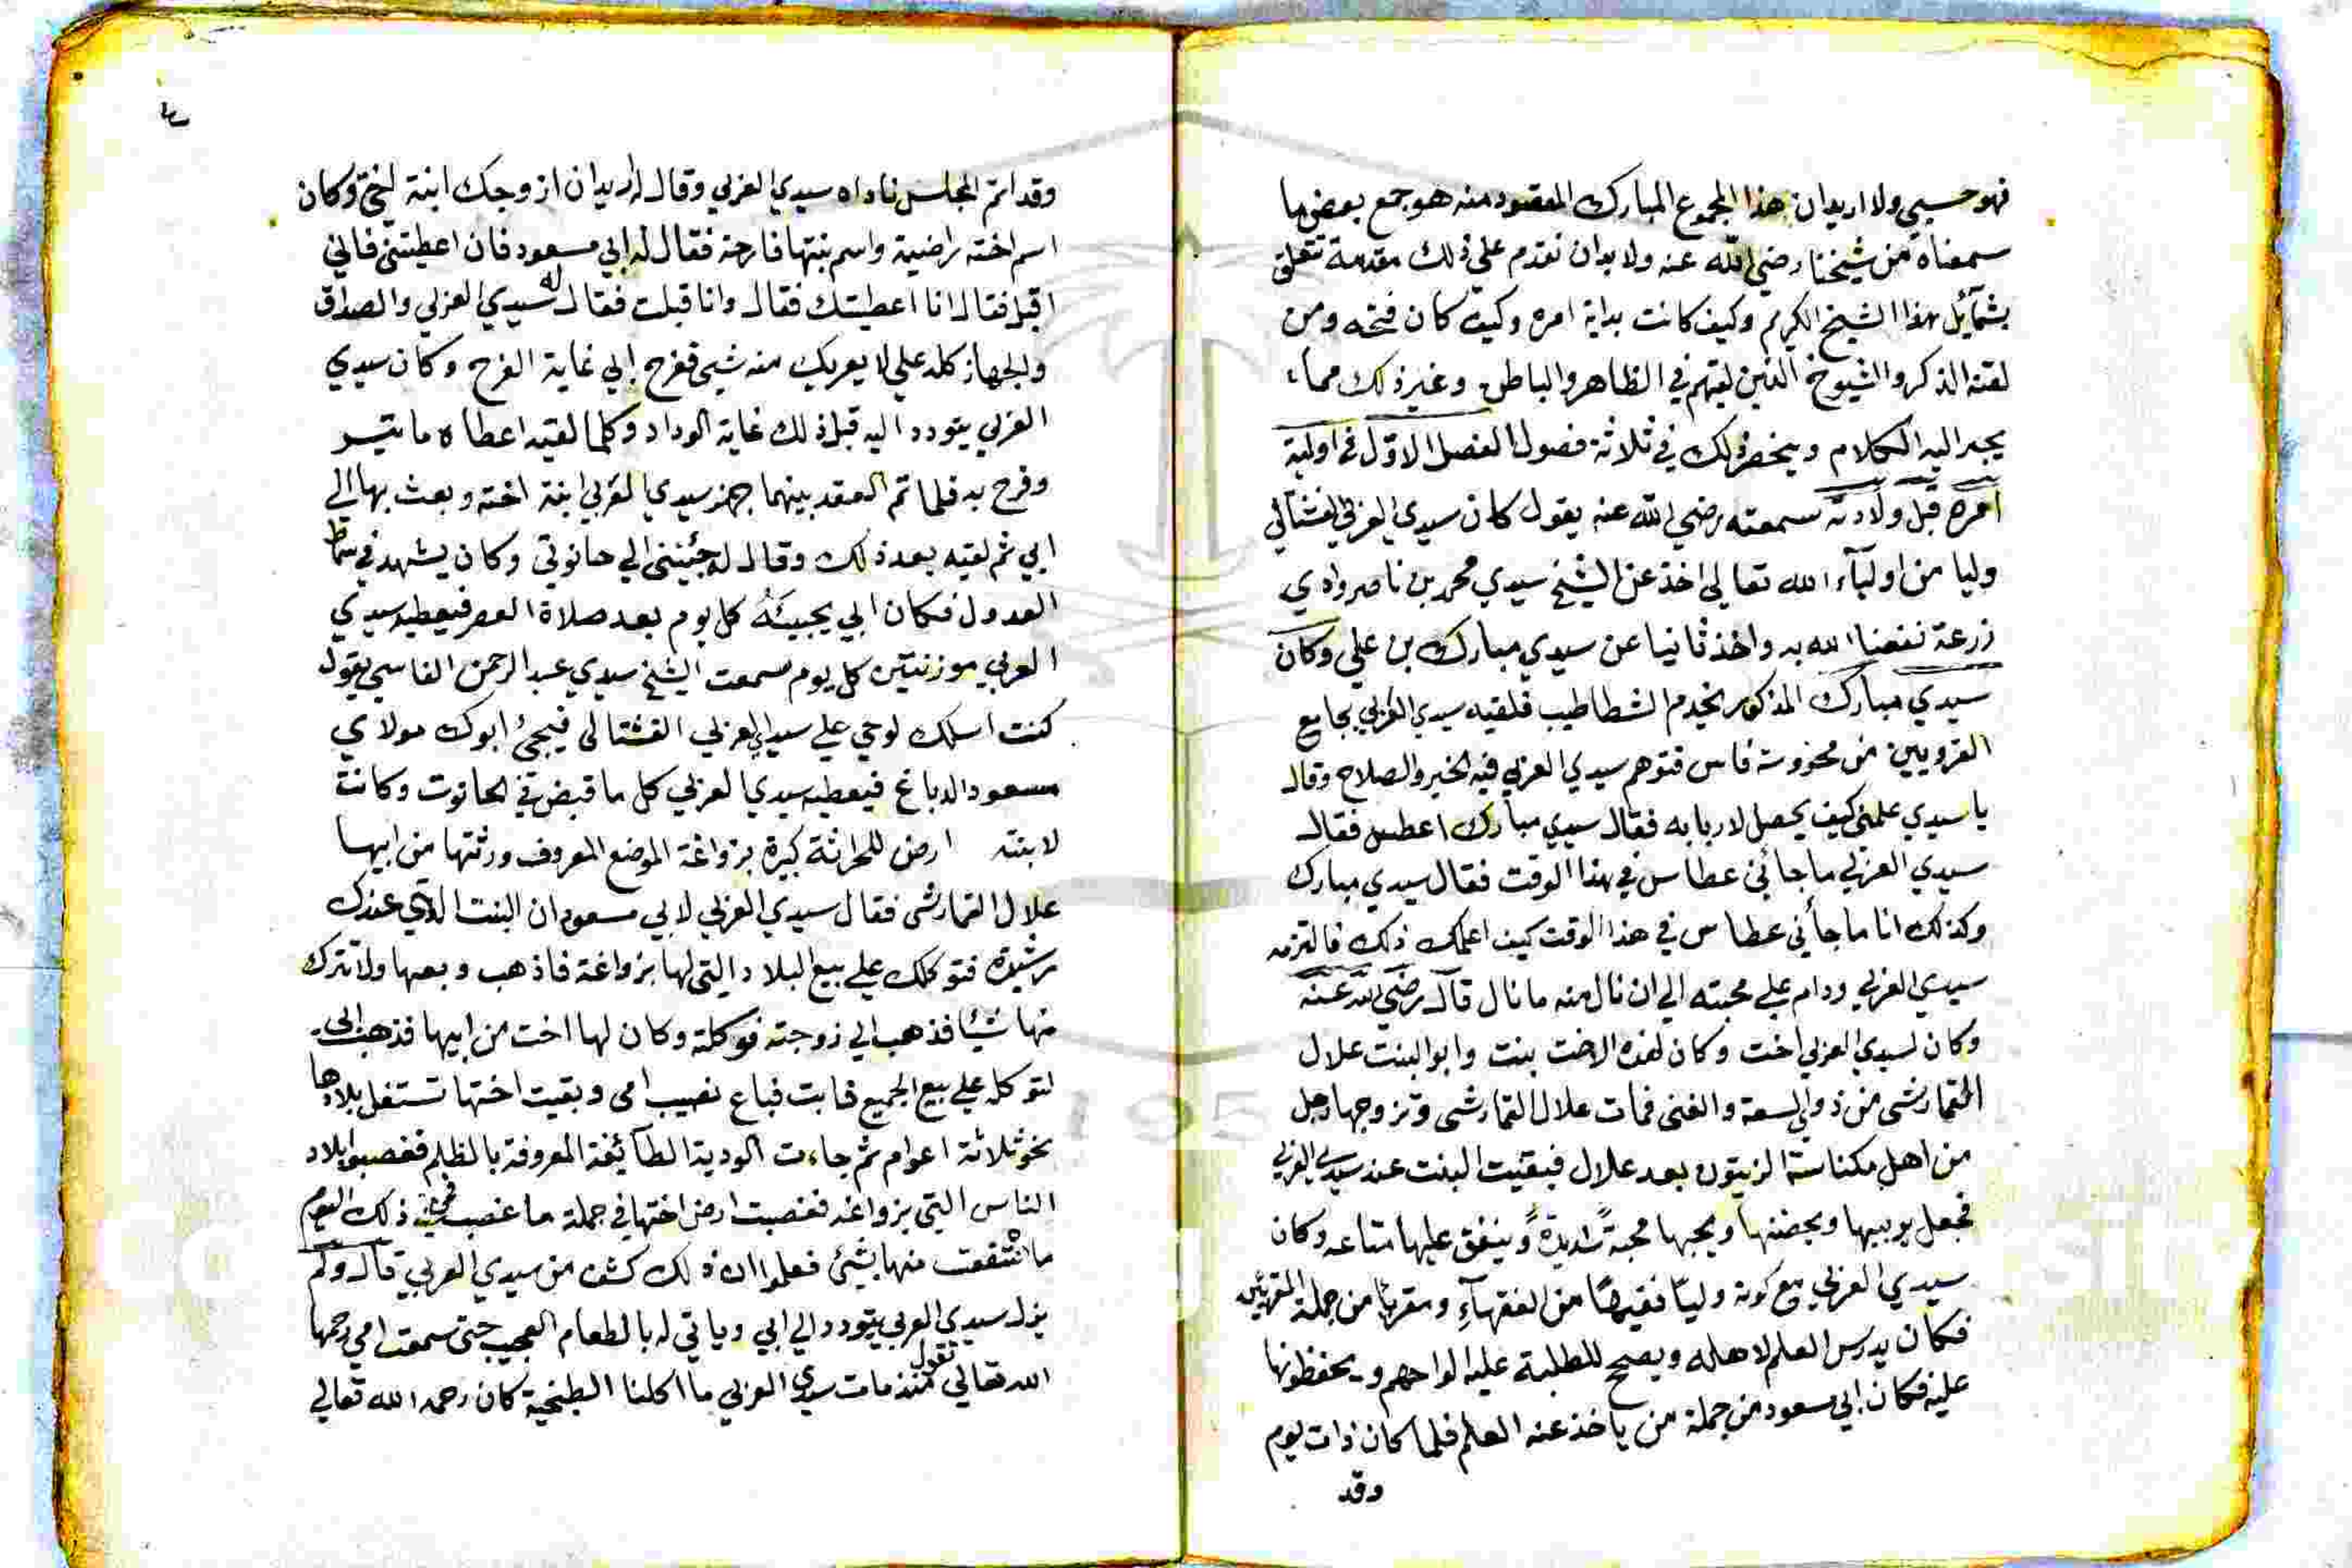 فهو حسبي ولا اريد ان هذا المجموع المبارك المقصود منه هو جمع بعض ما
سمعناه من شيخنا رضي الله عنه ولا بد ان نقدم علي ذلك مقدمة تتعلق
بشمآئل هذا الشيخ الكريم وكيف كانت بداية امره وكيف كان فتحه ومن
لقنه الذكر والشيوخ الذين لقيهم في الظاهر والباطن وغير ذلك مما
يجر اليه الكلام وينحصر ذلك في ثلاثة فصول الفصل الاول في اولية
امره قبل ولادته سمعته رضي الله عنه يقول كان سيدي العربي الفشتالي
وليا من اوليآء الله تعالي اخذ عن الشيخ سيدي محمد بن ناصر وادي
زرعة نفعنا الله به واخذ ثانيا عن سيدي مبارك بن علي وكان
سيدي مبارك المذكور يخدم الشطاطيب فلقيه سيدي العربي بجامع
القرويين من محروسة فاس فتوهم سيدي العربي فيه الخير والصلاح وقال
يا سيدي علمني كيف يحصل لاربابه فقال سيدي مبارك اعطس فقال
سيدي العربي ما جائني عطاس في هذا الوقت فقال سيدي مبارك
وكذلك انا ما جأني عطاس في هذا الوقت كيف اعلمك ذلك فالتزمه
سيدي العربي ودام علي محبته الي ان نال منه ما نال قال رضي الله عنه
وكان لسيدي العربي اخت وكان لهذه الاخت بنت وابو البنت علال
القمارشي من ذوي السعة والغني فمات علال القمارشي وتزوجها رجل
من اهل مكناسة الزيتون بعد علال فبقيت البنت عند سيدي العربي
فجعل يربيها ويحضنها ويحبها محبةً شديدةً وينفق عليها متاعه وكان
سيدي العربي مع كونه وليّا فقيهًا من الفقهآءِ ومقرئا من جملة المقرئين
فكان يدرس العلم لاهله ويصحح للطلبة عليه الواحهم ويحفظونها
عليه فكان ابي مسعود من جملة من ياخذ عنه العلم فلما كان ذات يوم
وقد
وقد اتم المجلس ناداه سيدي العربي وقال له اريد ان ازوجك ابنة اختي وكان
اسم اخته راضية واسم بنتها فارحة فقال له ابي مسعود فان اعطيتني فاني
اقبل فقال انا اعطيتك فقال وانا قبلت فقال له سيدي العربي والصداق
والجهاز كله علي لا يعريك منه شيئ ففرح ابي غاية الفرح وكان سيدي
العربي يتودد اليه قبل ذلك غاية الوداد وكلما لقيه اعطاه ما تيسر
وفرح به فلما تم العقد بينهما جهز سيدي العربي ابنة اخته وبعث بها الي
ابي ثم لقيه بعد ذلك وقال له جئيني الي حانوتي وكان يشهد في سماط
العدول فكان ابي يجيئه كل يوم بعد صلاة العصر فيعطيه سيدي
العربي موزنتين كل يوم سمعت الشيخ سيدي عبد الرحمن الفاسي يقول
كنت اسلك لوحي علي سيدي العربي الفشتالي فيجئ ابوك مولاي
مسعود الدباغ فيعطيه سيدي العربي كل ما قبض في الحانوت وكانت
لابنته ارض للحراثة كبيرة بزواغة الموضع المعروف ورثتها من ابيها
علال القمارشي فقال سيدي العربي لابي مسعود ان البنت الذي عندك
رشيدة فتوكلك علي بيع البلاد التي لها بزواغة فاذهب وبعها ولا تترك
منها شيًا فذهب الي زوجته فوكلته وكان لها اخت من ابيها فذهب الي
لتوكله علي بيع الجميع فابت فباع نصيب امي وبقيت اختها تستغل بلادها
نحو ثلاثة اعوام ثم جاءت الودية الطآئفة المعروفة بالظلم فغصبوا بلاد
الناس التي بزواغه فغصبت ارض اختها في جملة ما غصب فمن ذلك اليوم
ما انتفعت منها بشيئ فعلموا ان ذلك كشف من سيدي العربي قال ولم
يزل سيدي العربي يتودد الي ابي وياتي له بالطعام العجيب حتى سمعت امي رحمها
الله تعالي تقول منذ مات سيدي العربي ما اكلنا الطنجية كان رحمه الله تعالي